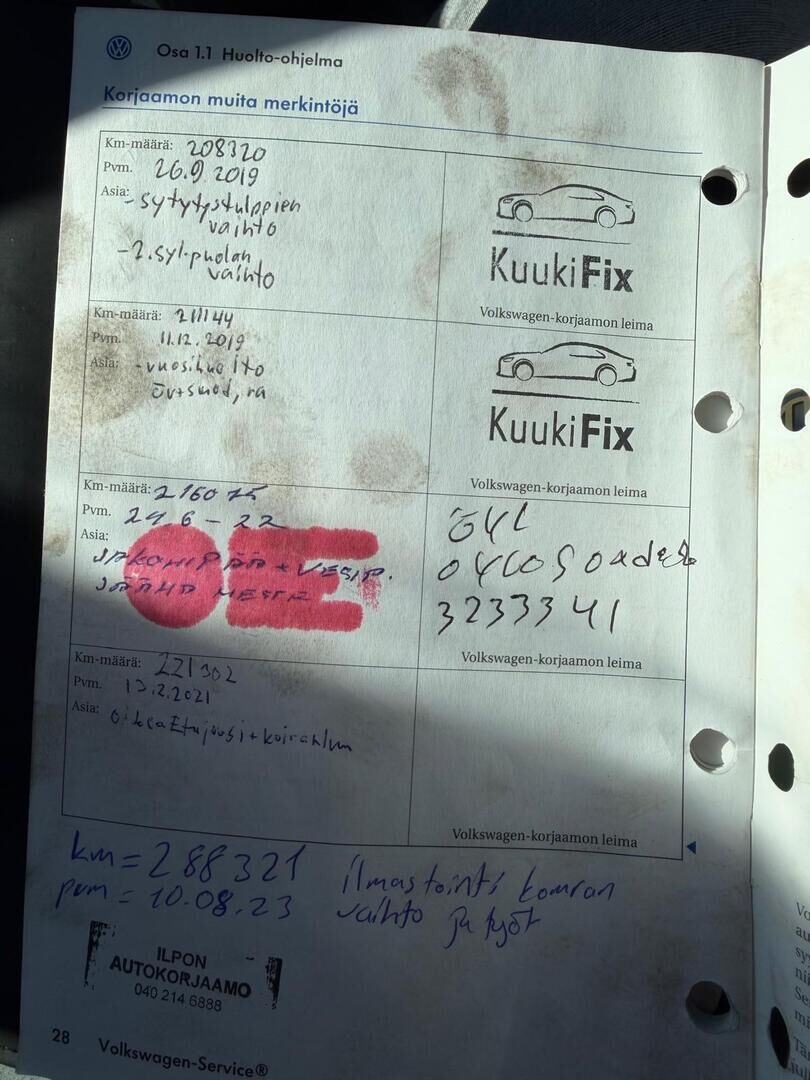 Osa 1.1 Huolto-ohjelma
Korjaamon muita merkintöjä
Km-määrä: 208320
Pvm. 26.9.2019
Asia: - sytytystulppien
vaihto
- 2.syl.puolan
vaihto
KuukiFix
Volkswagen-korjaamon leima
Km-määrä: 211144
Pvm. 11.12.2019
Asia: - vuosihuolto
öv+suod, ra
KuukiFix
Volkswagen-korjaamon leima
Km-määrä: 216075
Pvm. 24 6 - 22
Asia:
JAKOHIPÄÄ + VESIP.
JÄÄHD NESTE
OE
3233341
Volkswagen-korjaamon leima
Km-määrä: 221302
Pvm. 13.2.2021
Asia: oikea Etujousi +
Volkswagen-korjaamon leima
km = 288321 ilmastointi
pvm = 10.08.23 vaihto ja työt
ILPON
AUTOKORJAAMO
040 214 6888
28 Volkswagen-Service®